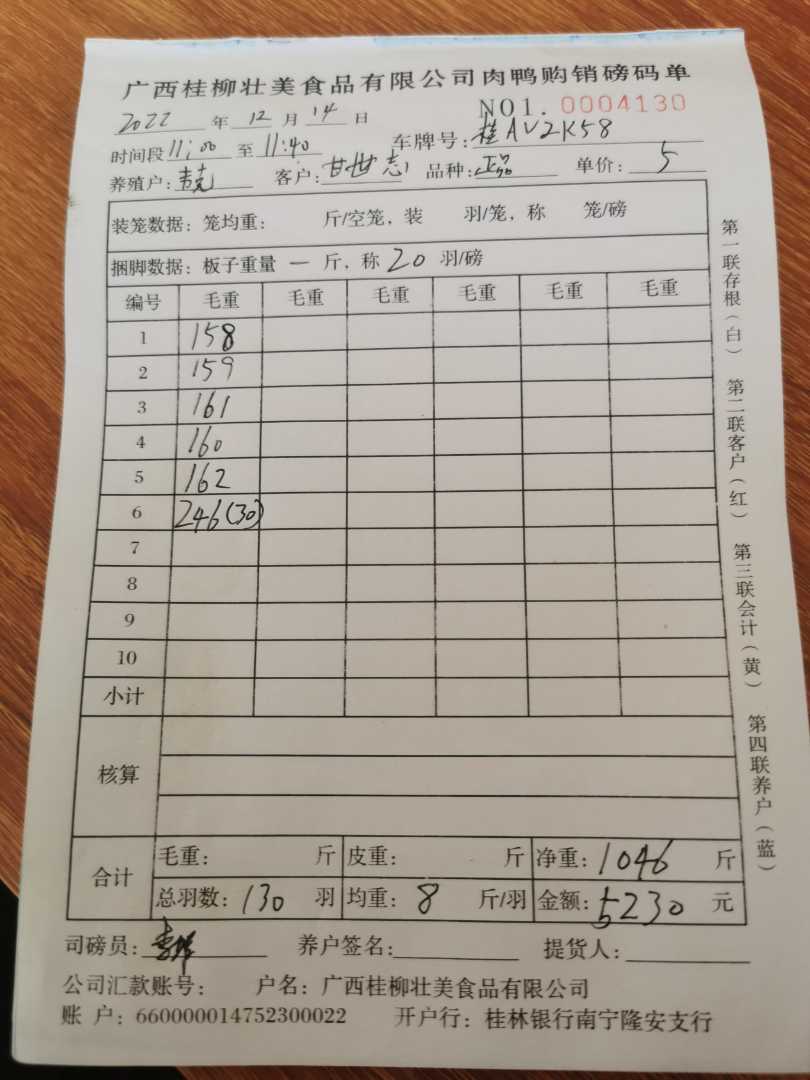 广西桂柳壮美食品有限公司肉鸭购销磅码单
NO1. 0004130
2022 年 12 月 14 日
车牌号: 桂AV2K58
时间段 11:00 至 11:40
养殖户: 客户: 甘世志 品种: 正品 单价: 5
装笼数据: 笼均重: 斤/空笼, 装 羽/笼, 称 笼/磅
捆脚数据: 板子重量 — 斤, 称 20 羽/磅
编号 毛重 毛重 毛重 毛重 毛重 毛重
1 158
2 159
3 161
4 160
5 162
6 246(30)
7
8
9
10
小计
核算
合计
毛重: 斤 皮重: 斤 净重: 1046 斤
总羽数: 130 羽 均重: 8 斤/羽 金额: 5230 元
司磅员: 养户签名: 提货人:
公司汇款账号: 户名: 广西桂柳壮美食品有限公司
账 户: 660000014752300022 开户行: 桂林银行南宁隆安支行
第一联存根(白) 第二联客户(红) 第三联会计(黄) 第四联养户(蓝)